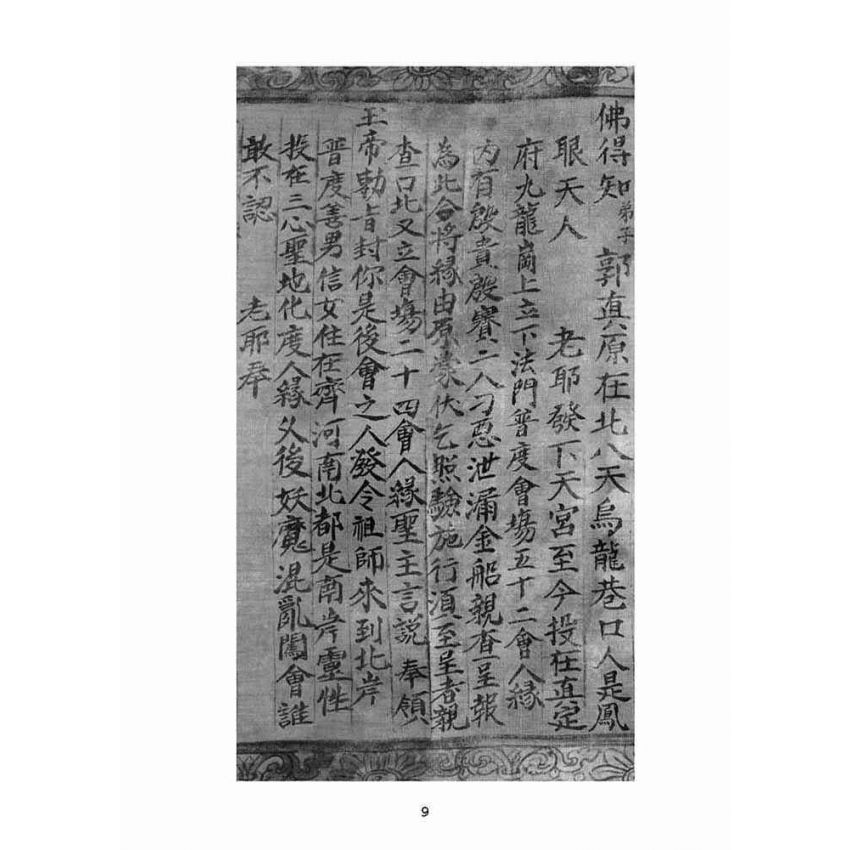 佛得知 弟子郭真原在北八天烏龍巷口人是鳳
眼天人 老耶發下天宮至今投在真定
府九龍崗上立下法門普度會塲五十二會人緣
内有殷貴殷寳二人刁惡泄漏金船親查呈報
為此合將緣由原 伏乞照驗施行湏至呈者親
查口北又立會塲二十四會人緣聖主言説 奉領
玉帝勅旨封你是後會之人發令祖師來到北岸
普度善男信女住在齊河南北都是南岸靈性
投在三心聖地化度人緣久後妖魔混亂闖會誰
敢不認 老耶奉
9